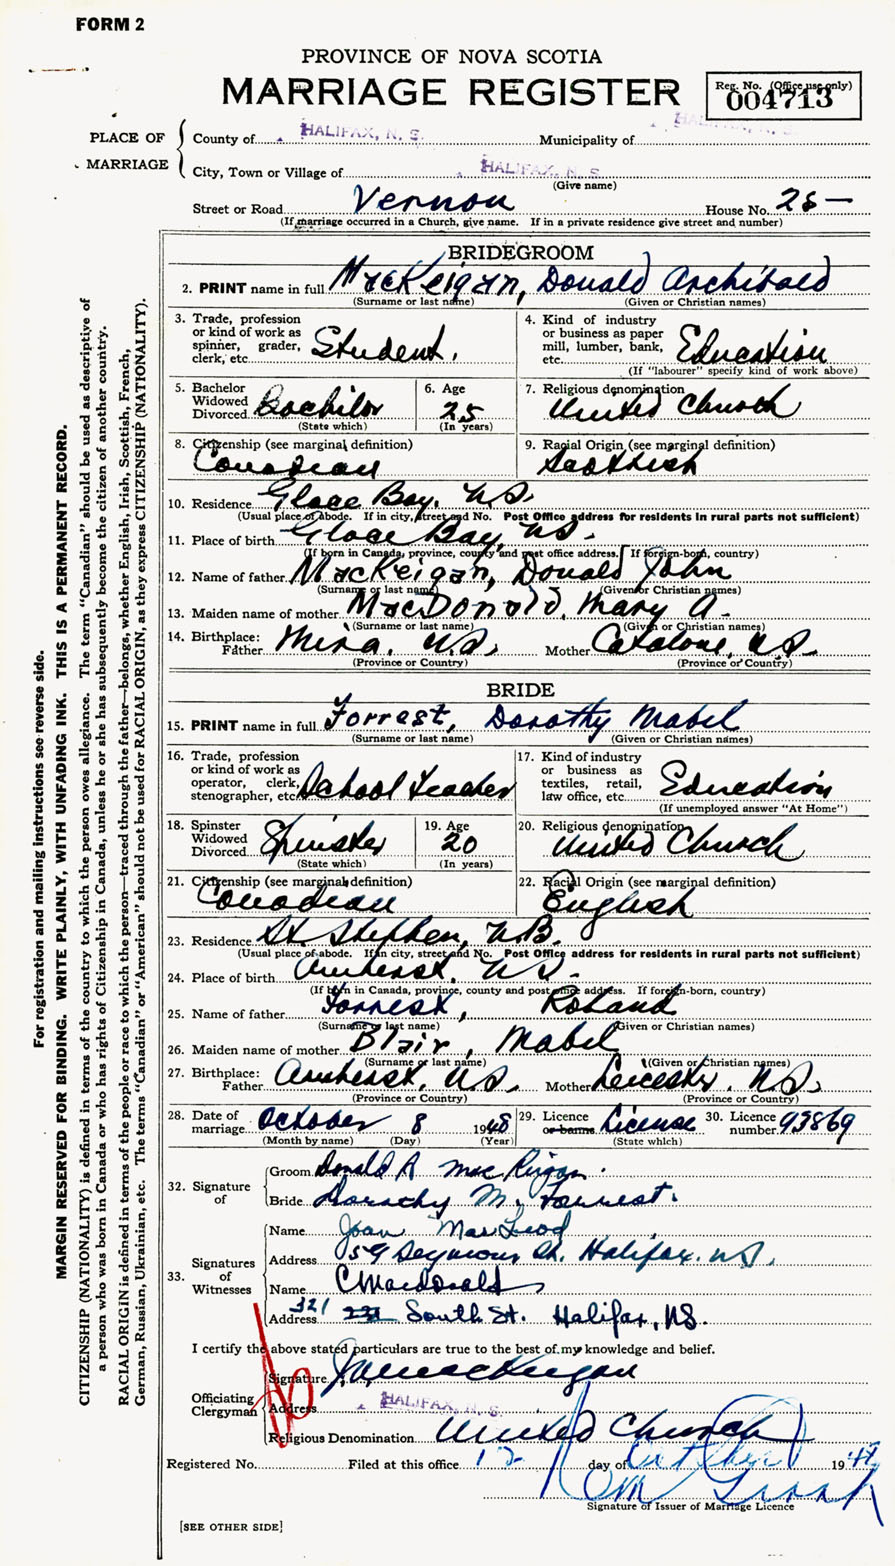 FORM 2
PROVINCE OF NOVA SCOTIA
MARRIAGE REGISTER
Reg. No. (Office use only)
004713
PLACE OF MARRIAGE
County of HALIFAX, N. S. Municipality of HALIFAX, N. S.
City, Town or Village of HALIFAX, N. S.
(Give name)
Street or Road Vernon House No. 25 —
(If marriage occurred in a Church, give name. If in a private residence give street and number)
BRIDEGROOM
2. PRINT name in full MacKeigan, Donald Archibald
(Surname or last name) (Given or Christian names)
3. Trade, profession or kind of work as spinner, grader, clerk, etc. Student.
4. Kind of industry or business as paper mill, lumber, bank, etc. Education
(If "labourer" specify kind of work above)
5. Bachelor Widowed Divorced Bachilor
(State which)
6. Age 25
(In years)
7. Religious denomination United Church
8. Citizenship (see marginal definition) Canadian
9. Racial Origin (see marginal definition) Scottish
10. Residence Glace Bay, N.S.
(Usual place of abode. If in city, street and No. Post Office address for residents in rural parts not sufficient)
11. Place of birth Glace Bay, N.S.
(If born in Canada, province, county and post office address. If foreign-born, country)
12. Name of father MacKeigan, Donald John
(Surname or last name) (Given or Christian names)
13. Maiden name of mother MacDonald, Mary A.
(Surname or last name) (Given or Christian names)
14. Birthplace: Father Mira, N.S. Mother Catalone, N.S.
(Province or Country) (Province or Country)
BRIDE
15. PRINT name in full Forrest, Dorothy Mabel
(Surname or last name) (Given or Christian names)
16. Trade, profession or kind of work as operator, clerk, stenographer, etc. School Teacher
17. Kind of industry or business as textiles, retail, law office, etc. Education
(If unemployed answer "At Home")
18. Spinster Widowed Divorced Spinster
(State which)
19. Age 20
(In years)
20. Religious denomination United Church
21. Citizenship (see marginal definition) Canadian
22. Racial Origin (see marginal definition) English
23. Residence St. Stephen, N.B.
(Usual place of abode. If in city, street and No. Post Office address for residents in rural parts not sufficient)
24. Place of birth Amherst, N.S.
(If born in Canada, province, county and post office address. If foreign-born, country)
25. Name of father Forrest, Roland
(Surname or last name) (Given or Christian names)
26. Maiden name of mother Blair, Mabel
(Surname or last name) (Given or Christian names)
27. Birthplace: Father Amherst, N.S. Mother Leicester, N.S.
(Province or Country) (Province or Country)
28. Date of marriage October 8 1948
(Month by name) (Day) (Year)
29. Licence or banns License
(State which)
30. Licence number 93869
32. Signature of
Groom Donald A MacKeigan.
Bride Dorothy M. Forrest.
33. Signatures of Witnesses
Name Joan MacLeod
Address 59 Seymour St. Halifax. N.S.
Name C MacDonald
Address 321 South St. Halifax, N.S.
I certify the above stated particulars are true to the best of my knowledge and belief.
Officiating Clergyman
Signature
Address HALIFAX, N. S.
Religious Denomination United Church
Registered No. Filed at this office 12 day of October 1948
Signature of Issuer of Marriage Licence
[SEE OTHER SIDE]
For registration and mailing instructions see reverse side.
MARGIN RESERVED FOR BINDING. WRITE PLAINLY, WITH UNFADING INK. THIS IS A PERMANENT RECORD.
CITIZENSHIP (NATIONALITY) is defined in terms of the country to which the person owes allegiance. The term "Canadian" should be used as descriptive of
a person who was born in Canada or who has rights of Citizenship in Canada, unless he or she has subsequently become the citizen of another country.
RACIAL ORIGIN is defined in terms of the people or race to which the person—traced through the father—belongs, whether English, Irish, Scottish, French,
German, Russian, Ukrainian, etc. The terms "Canadian" or "American" should not be used for RACIAL ORIGIN, as they express CITIZENSHIP (NATIONALITY).